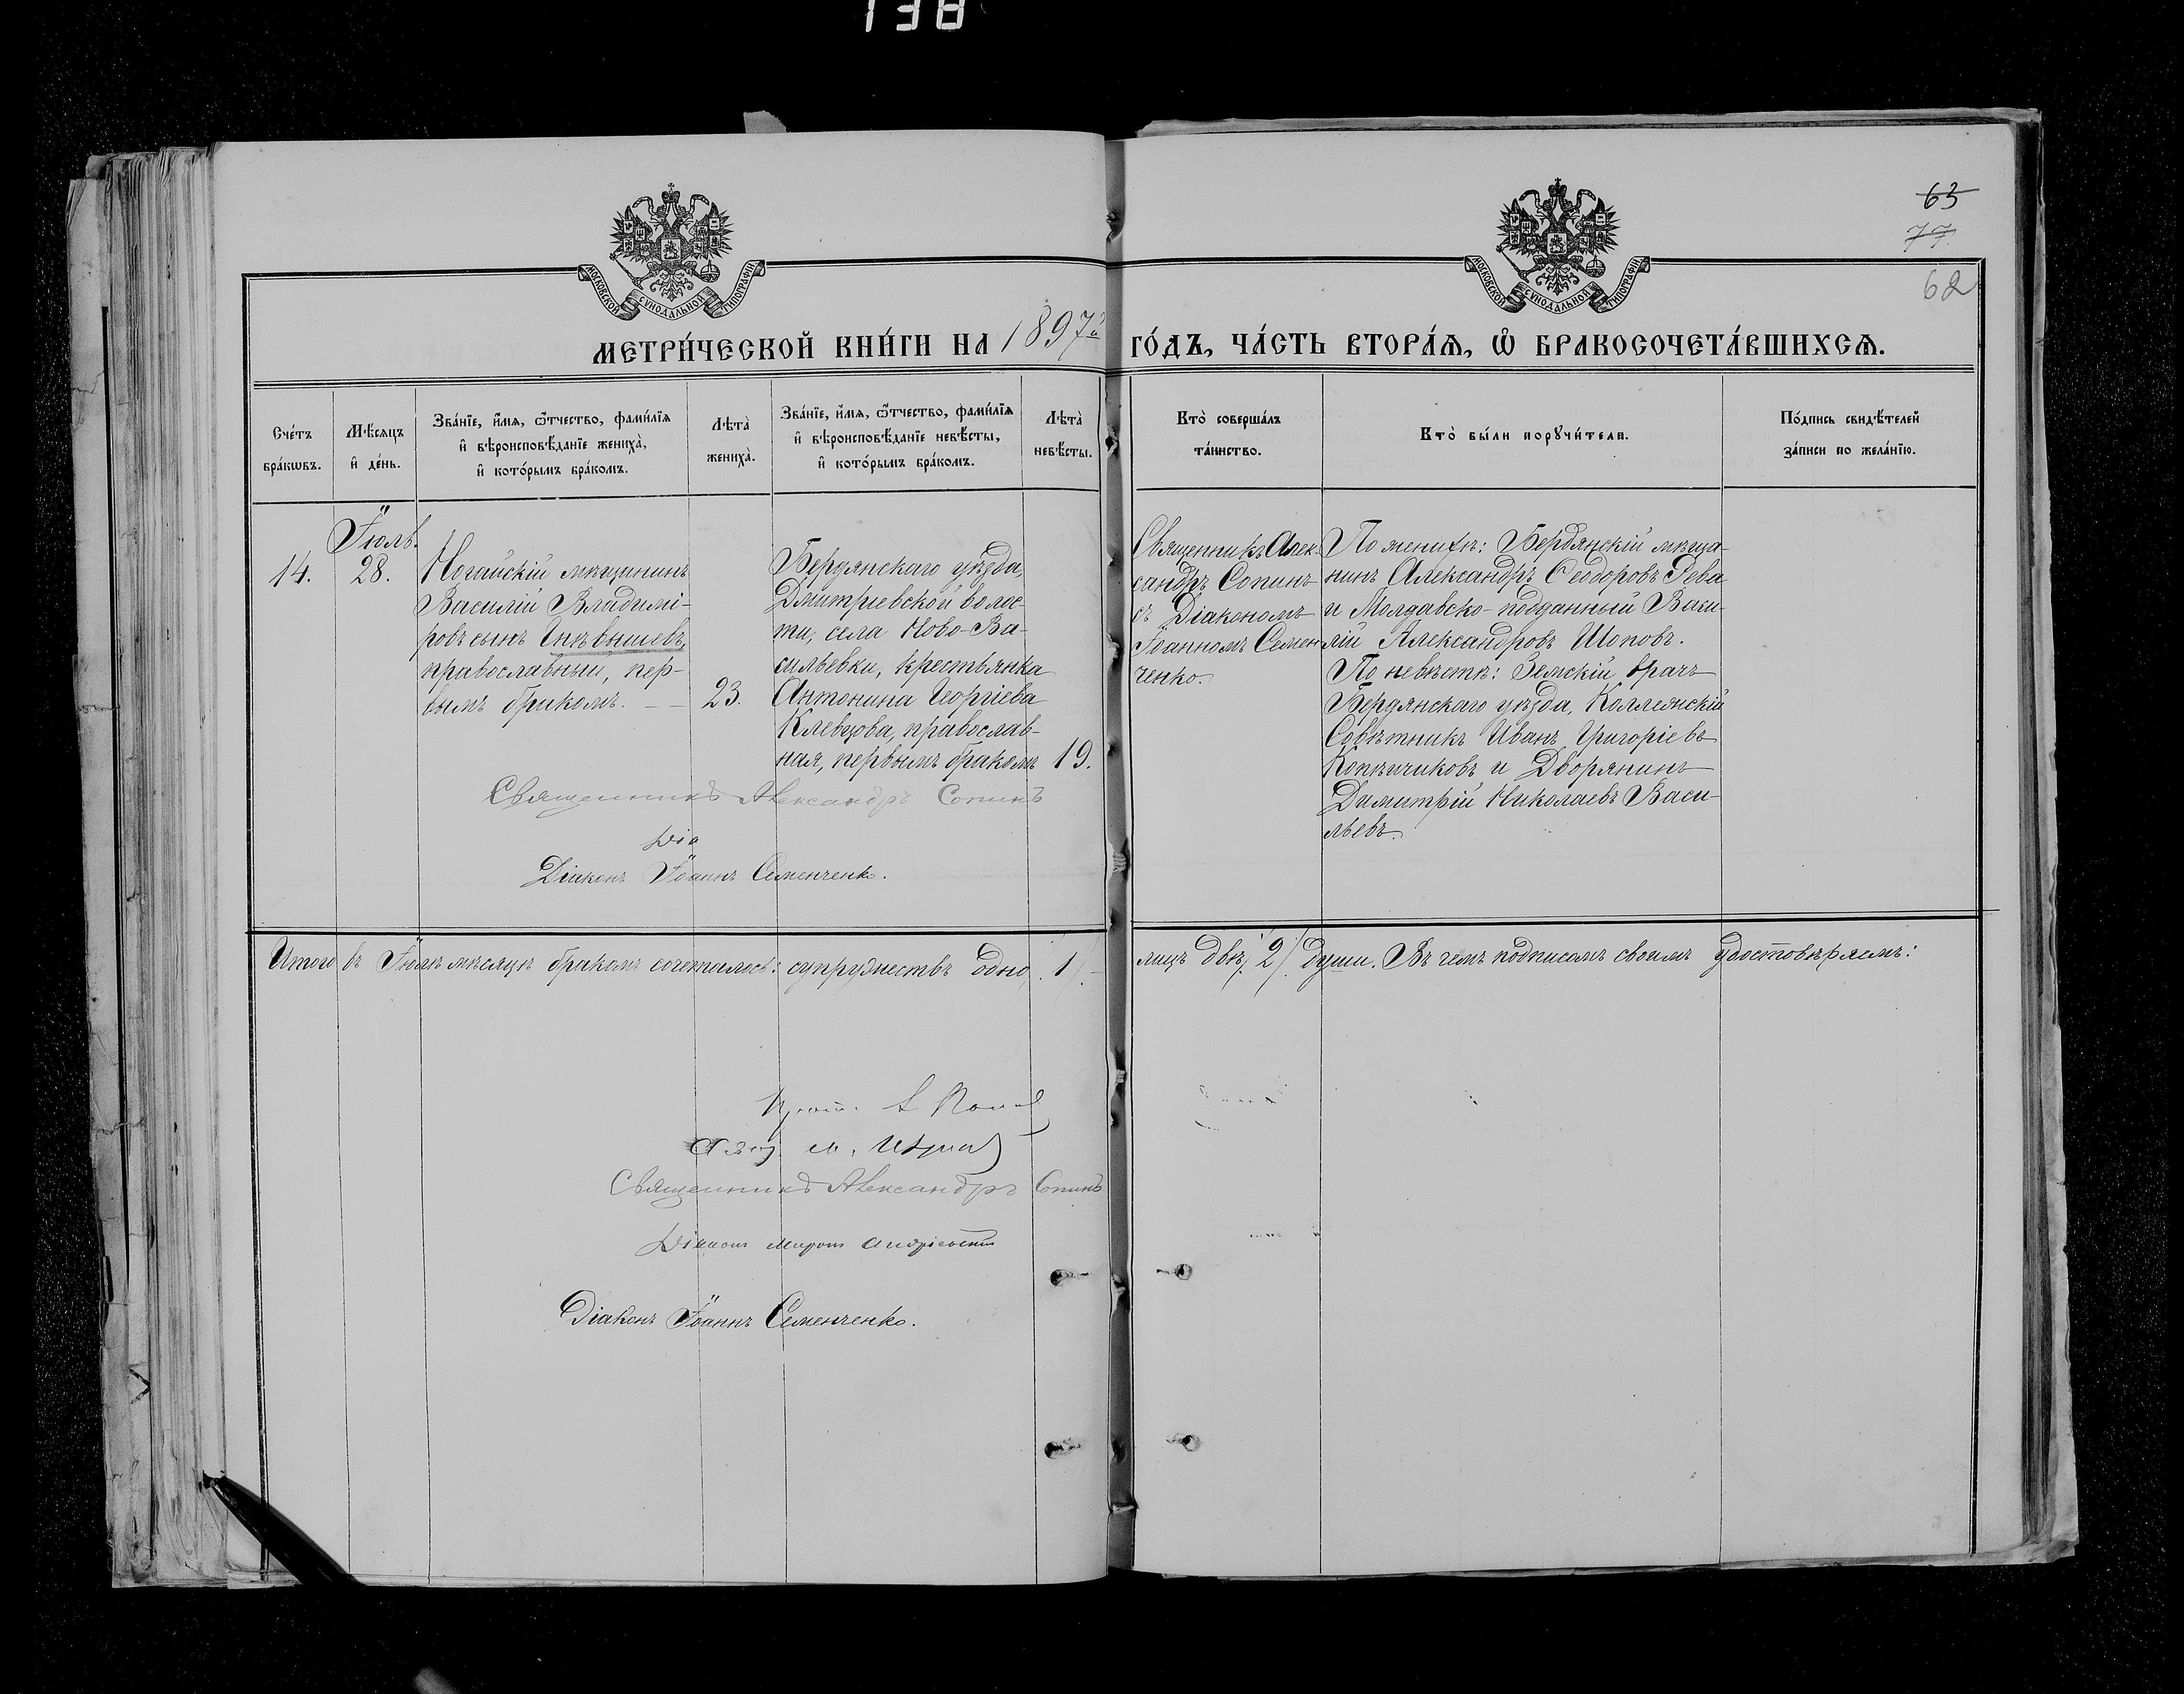 138
63
77
62
МОСКОВСКОЙ СУНОДАЛЬНОЙ ТИПОГРАФІИ
МОСКОВСКОЙ СУНОДАЛЬНОЙ ТИПОГРАФІИ
МЕТРИ́ЧЕСКОЙ КНИ́ГИ НА 1897й ГО́ДЪ, ЧА́СТЬ ВТОРА́Ѧ, Ѡ҆ БРАКОСОЧЕТА́ВШИХСѦ.
Сче́тъ
бра́кѡвъ.
Мѣ́сѧцъ
и҆ де́нь.
Зва́нїе, и҆́мѧ, ѻ҆́тчество, фами́лїѧ
и҆ вѣроисповѣ́данїе жениха̀,
и҆ кото́рымъ бра́комъ.
Лѣта̀
жениха̀.
Зва́нїе, и҆́мѧ, ѻ҆́тчество, фами́лїѧ
и҆ вѣроисповѣ́данїе невѣ́сты,
и҆ кото́рымъ бра́комъ.
Лѣта̀
невѣ́сты.
Кто̀ соверша́лъ
та́инство.
Кто̀ бы́ли порꙋчи́тели.
По́дпись свидѣ́телей
за́писи по жела́нїю.
14.
Іюль.
28.
Ногайскій мѣщанинъ
Василій Владимі-
ровъ сынъ
православный, пер-
вымъ бракомъ. — —
23.
Бердянскаго уѣзда,
Дмитріевской волос-
ти, села Ново-Ва-
сильевки, крестьянка
Антонина Георгіева
Клевцова, православ-
ная, первымъ бракомъ
19.
Священникъ Алек-
сандръ Сопинъ
съ Діакономъ
Іоанномъ Семен-
ченко.
По женихѣ: Бердянскій мѣща-
нинъ Александръ Ѳеодоровъ Рева
и Молдавско-подданный Васи-
лій Александровъ Шоповъ.
По невѣстѣ: Земскій врачъ
Бердянскаго уѣзда, Коллежскій
Совѣтникъ Иванъ Григоріевъ
Копѣичиковъ и Дворянинъ
Димитрій Николаевъ Васи-
льевъ.
Священникъ Александръ Сопинъ
Діа
Діаконъ Іоаннъ Семенченко.
Итого въ Іюлѣ мѣсяцѣ бракомъ сочеталось: супружествъ одно /. 1 /. лицъ двѣ /. 2 /. души. Въ чемъ подписомъ своимъ удостовѣряемъ:
Священникъ Александръ Сопинъ
Діаконъ Миронъ Андріевскій
Діаконъ Іоаннъ Семенченко.